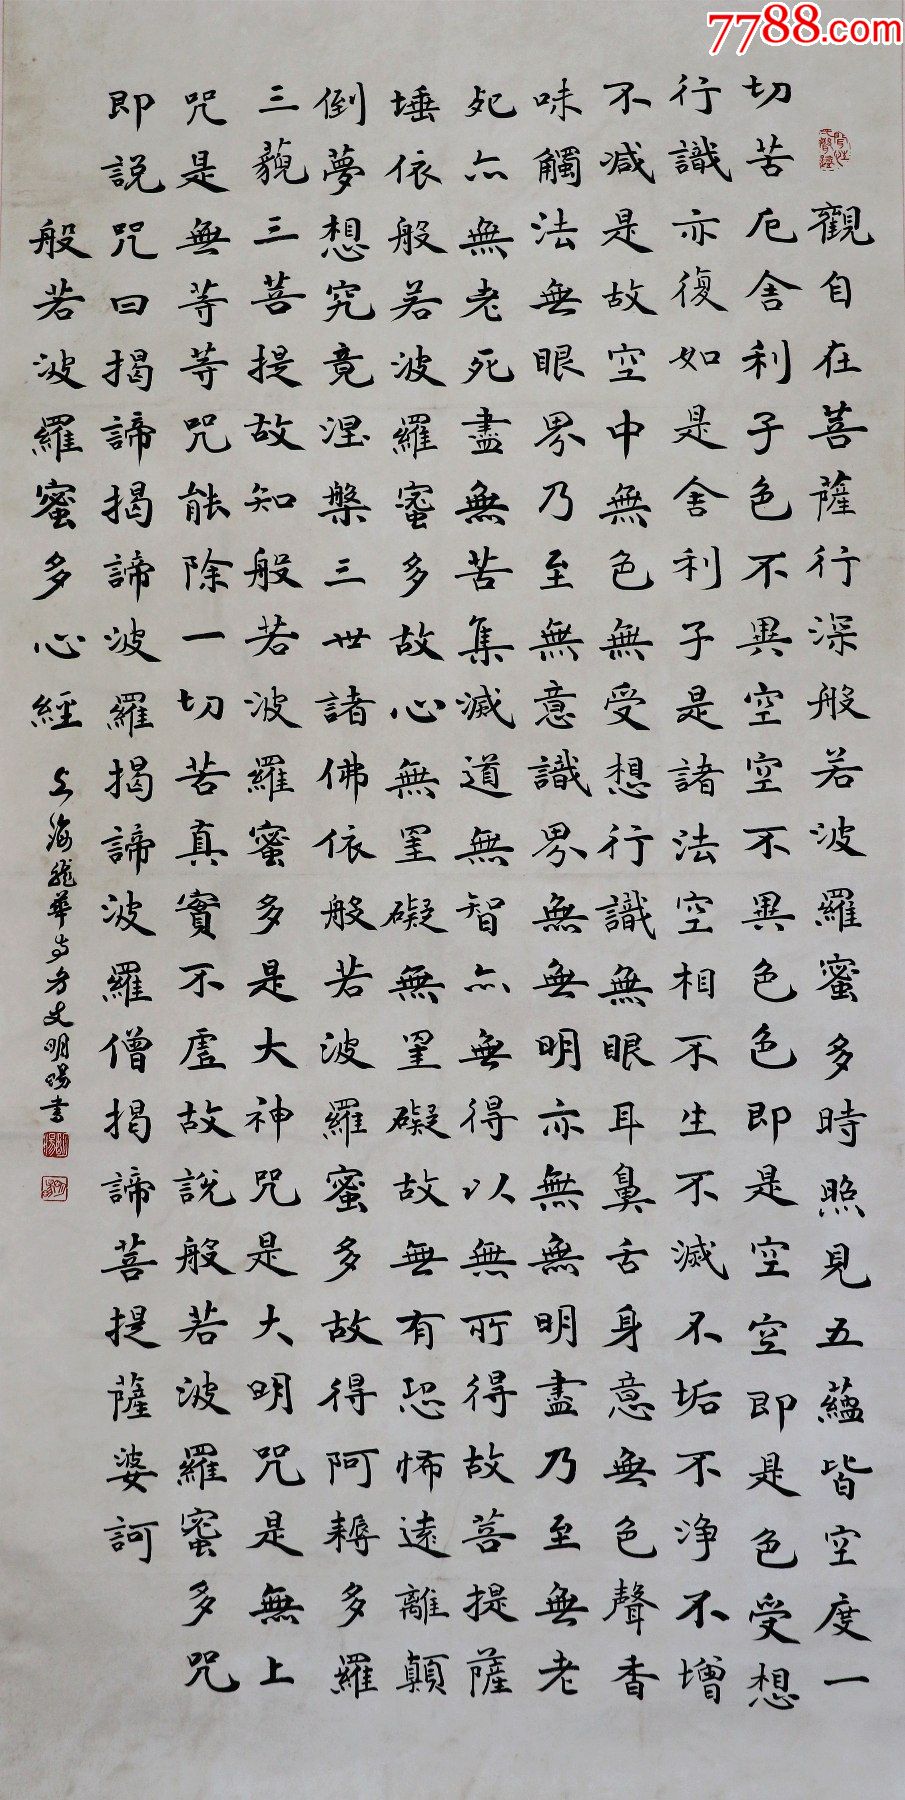 7788.com
觀自在菩薩行深般若波羅蜜多時照見五蘊皆空度一
切苦厄舍利子色不異空空不異色色即是空空即是色受想
行識亦復如是舍利子是諸法空相不生不滅不垢不净不增
不减是故空中無色無受想行識無眼耳鼻舌身意無色聲香
味觸法無眼界乃至無意識界無無明亦無無明盡乃至無老
死亦無老死盡無苦集滅道無智亦無得以無所得故菩提薩
埵依般若波羅蜜多故心無罣礙無罣礙故無有恐怖遠離顛
倒夢想究竟涅槃三世諸佛依般若波羅蜜多故得阿耨多羅
三藐三菩提故知般若波羅蜜多是大神咒是大明咒是無上
咒是無等等咒能除一切苦真實不虛故說般若波羅蜜多咒
即說咒曰揭諦揭諦波羅揭諦波羅僧揭諦菩提薩婆訶
般若波羅蜜多心經
上海龍華寺方丈明暘書